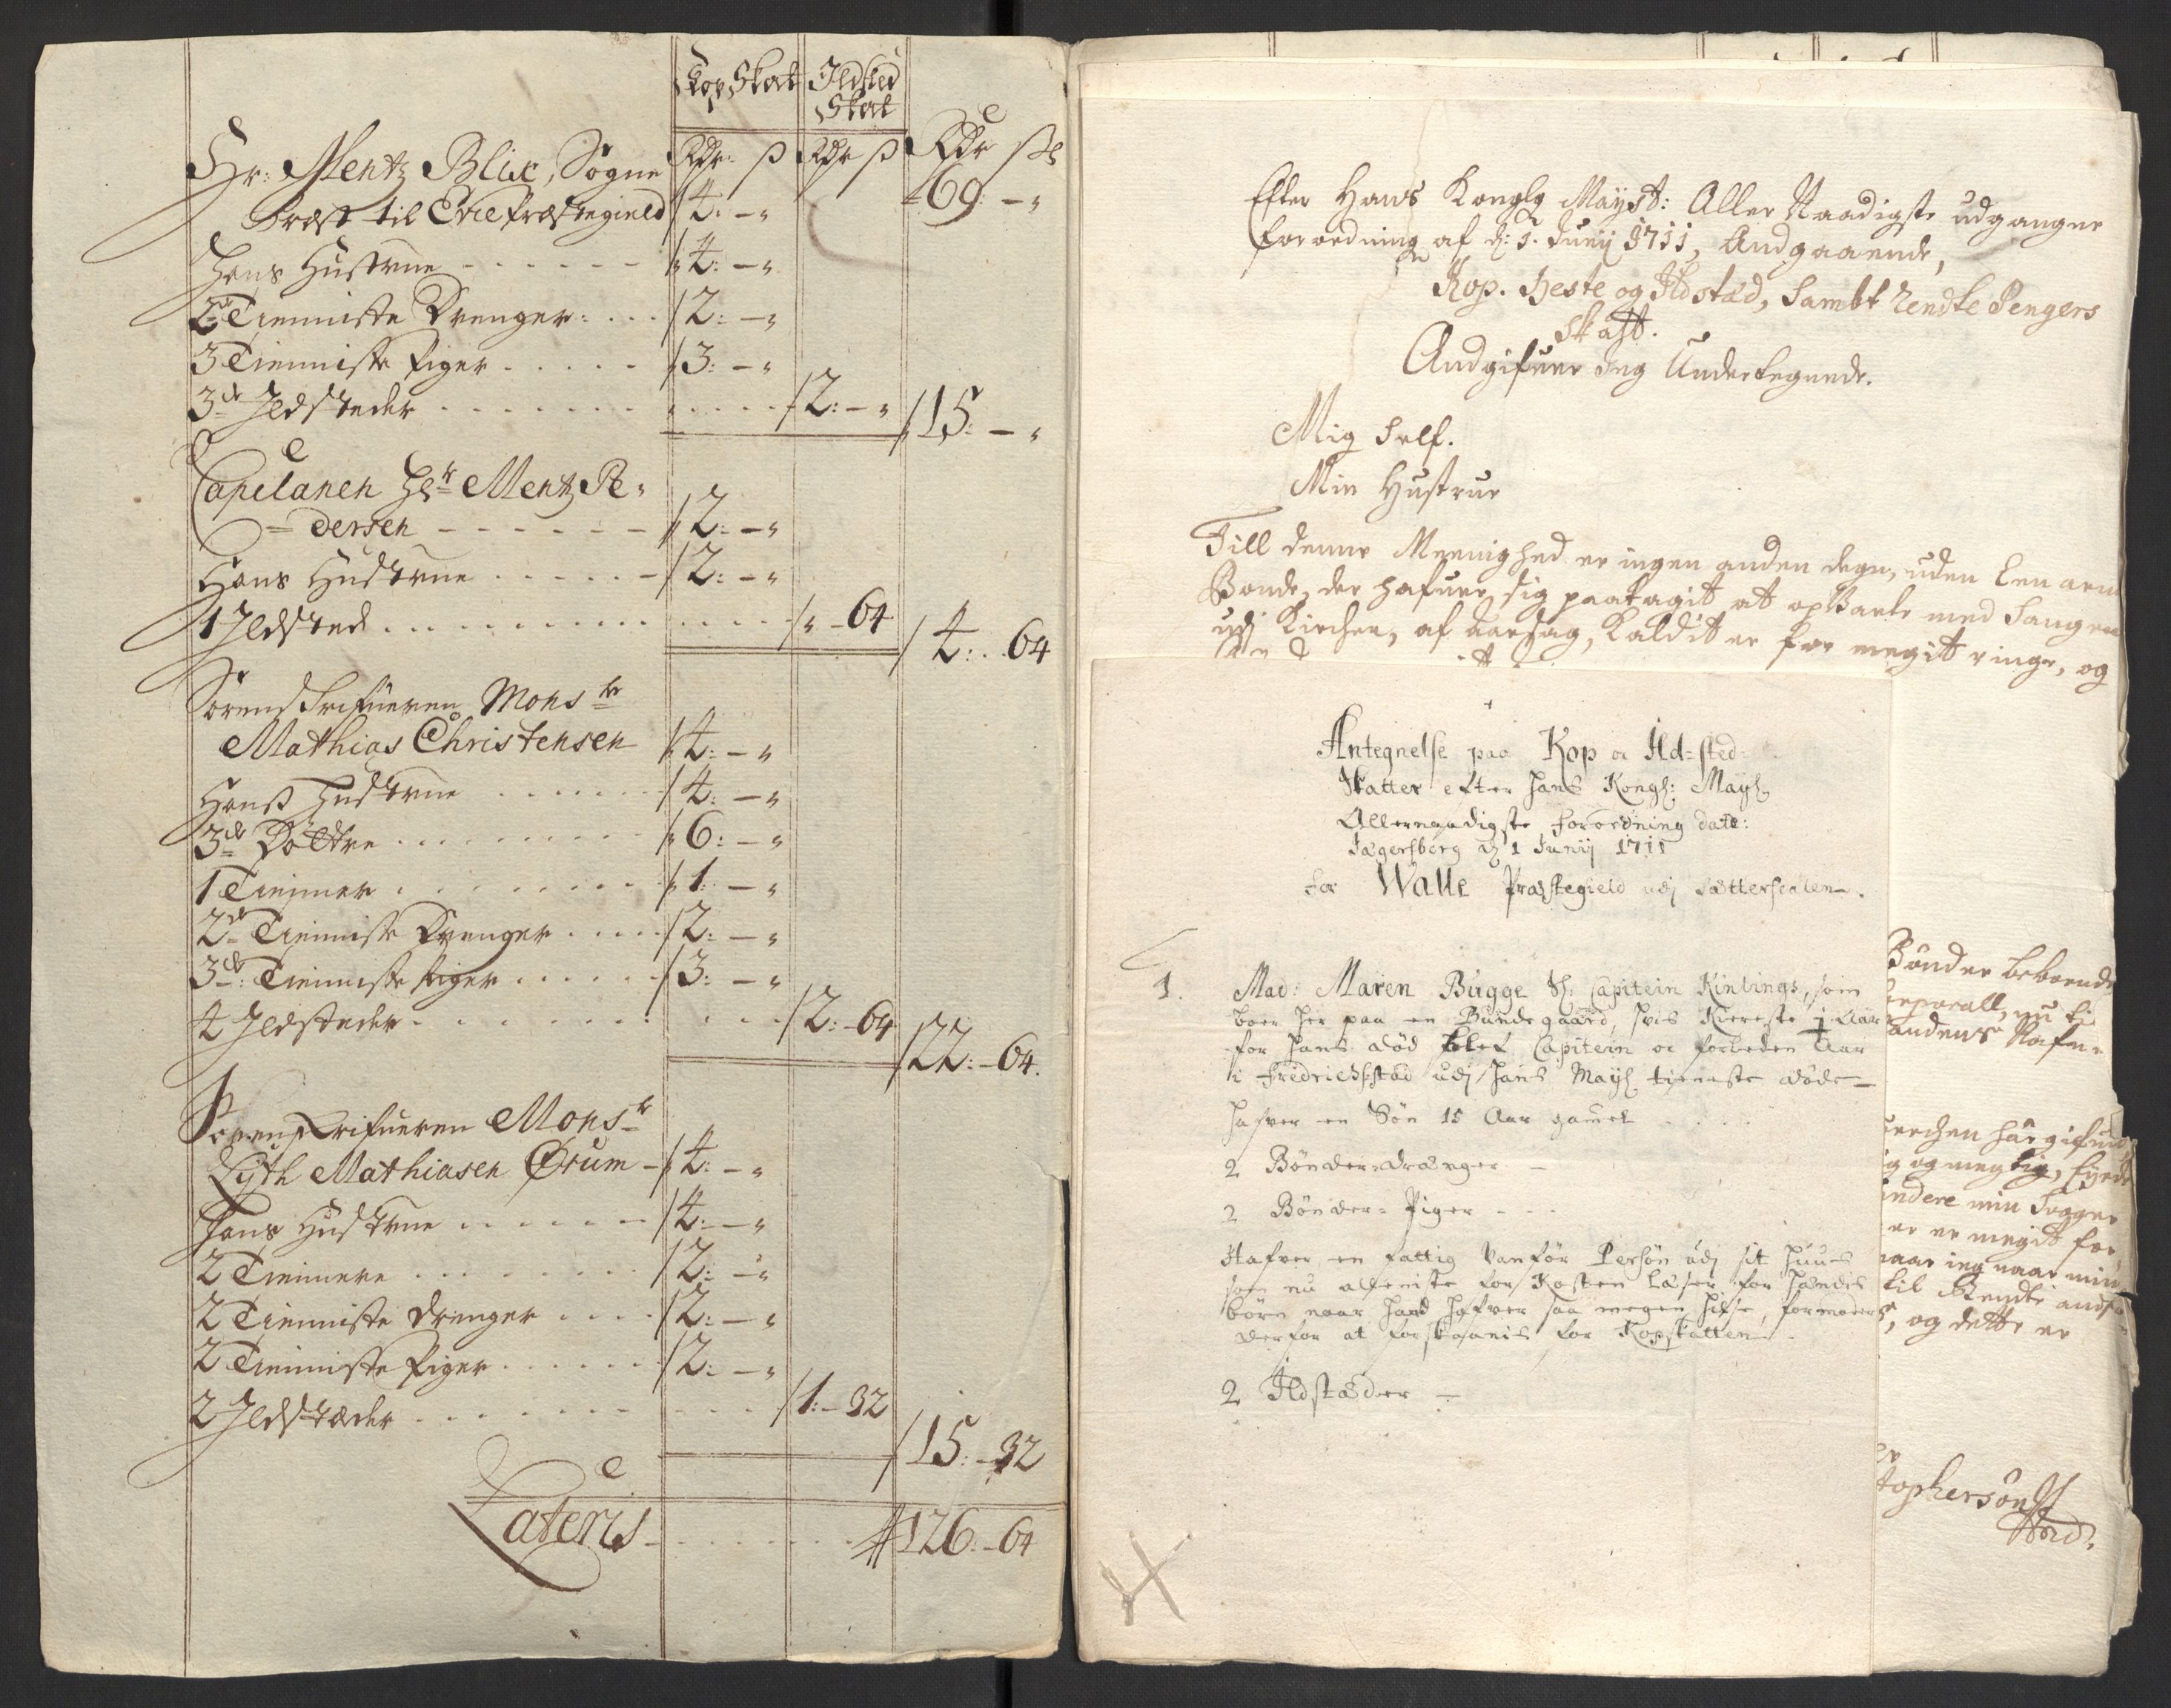 Kop Skat
Ildsted
Skat
Rdr: ß Rdr ß Rdr ß
69: -
Hr: Mentz Blix, Sogne
Præst til Evie Præstegield 4: -
Hans Hustrue - - - - - - 4: -
2de Tienniste Drenger: . . . 2: -
3 Tienniste Piger . . . . . 3: -
3de Ildsteder . . . . . . . 2: - 15: -
Capelanen Hr Mentz Pe-
dersen - - - - - - 2: -
Hans Hustrue . . . . . - 2: -
1 Ildsted . . . . . . . . . - 64 4: . . 64
Sorenskrifueren Monsr
Mathias Christensen 4: -
Hans Hustrue . . . . . . 4: -
3de Døttre . . . . . . . . 6: -
1 Tienner . . . . . . . 1: -
2de Tienniste Drenger . . . . 2: -
3de: Tienniste Piger . . . . . 3: -
4 Ildsteder . . . . . . . . 2: - 64 22: - 64.
Sorenskrifueren Monsr
Lyth Mathiasen Ørum - 4: -
Hans Hustrue . . . . . - 4: -
2 Tiennere . . . . . . . 2: -
2 Tienniste Drenger . . . . 2: -
2 Tienniste Piger . . . . . . 2: -
2 Ildstæder . . . . . . . . 1: - 32 15: - 32
Lateris - . . . . . . . 126: - 64
Efter Hans Konglg Mayst: Aller Naadigste udgangne
forordning af d: 1. Junij 1711, Andgaaende,
Kop. Heste og Ildstæd, sambt Rendte Pengers
skatt.
Andgifuer Jeg Undertegnede.
Mig self.
Min Hustrue
Till denne Meenighed er ingen anden degn, uden Een arm
Bonde, der hafuer sig paatagit at opvarte med Sangen
udj Kirchen, af aarsag, Kaldit er for megit ringe, og
Antegnelse paa Kop oc Ild-sted-
Skatter efter Hans Kongl: Mayst
Allernaadigste forordning dat:
Jægersborg d 1 Junij 1711
for Walle Præstegield udj Sættersdalen.
1. Mad: Maren Bugge Sl: Capitein Kinlings, som
boer her paa en Bundegaard, hvis Kiereste 1 Aar
for hans død blef Capitein oc forleden Aar
i Fredrichsstad udj Hans Mayst tieniste døde -
hafver en Søn 15 Aar gamel . . . .
2 Bønder-drænger -
2 Bønder-Piger - - -
Hafver en fattig vanfør Persön udj sit huus
som nu alleniste for Kosten læser for hendes
børn naar hand hafver saa megen hilse, formoder
derfor at forskaanis for Kopskatten
2 Ildstæder -
Bønder beboende
andens Nafn
Kirchen här gifue
og dette er
topherson